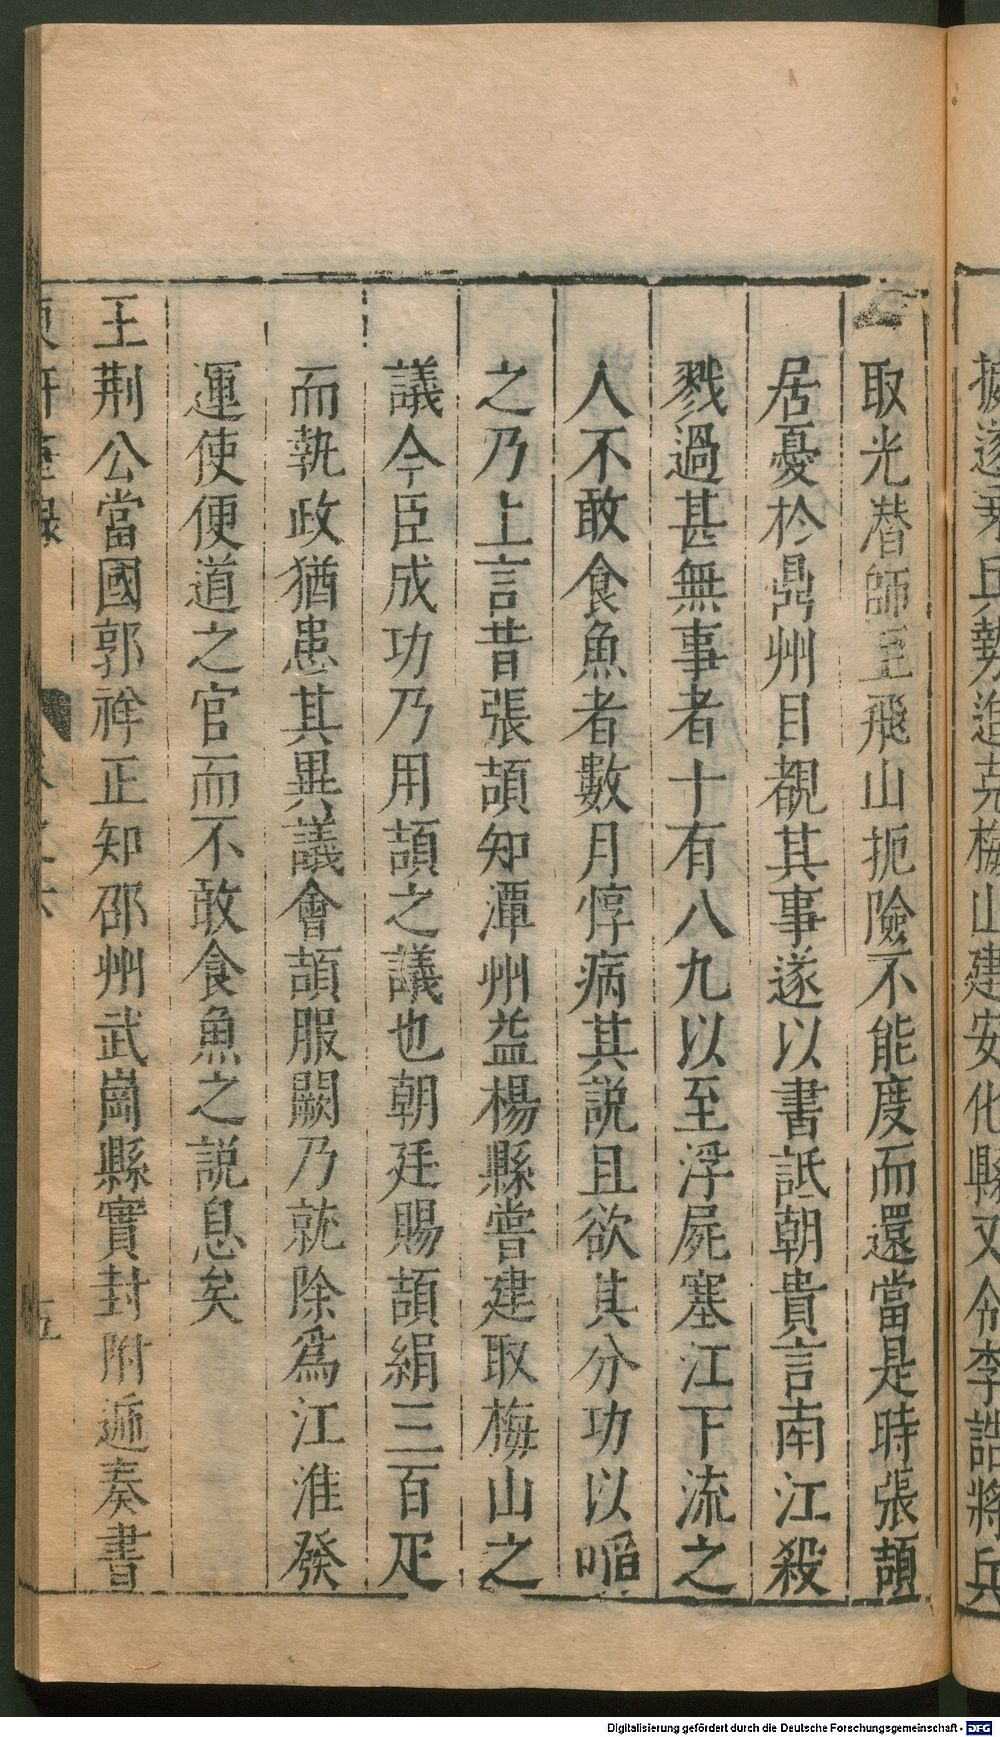 據遂乘兵勢進克梅山建安化縣又令李誥將兵
取光潜師至飛山扼險不能度而還當是時張頡
居憂於鼎州目覩其事遂以書詆朝貴言南江殺
戮過甚無事者十有八九以至浮屍塞江下流之
人不敢食魚者數月惇病其說且欲其分功以啗
之乃上言昔張頡知潭州益楊縣嘗建取梅山之
議今臣成功乃用頡之議也朝廷賜頡絹三百疋
而執政猶患其異議會頡服闋乃就除為江淮發
運使便道之官而不敢食魚之說息矣
王荆公當國郭祥正知邵州武崗縣實封附遞奏書
東軒筆錄
卷之六
五
Digitalisierung gefördert durch die Deutsche Forschungsgemeinschaft - DFG